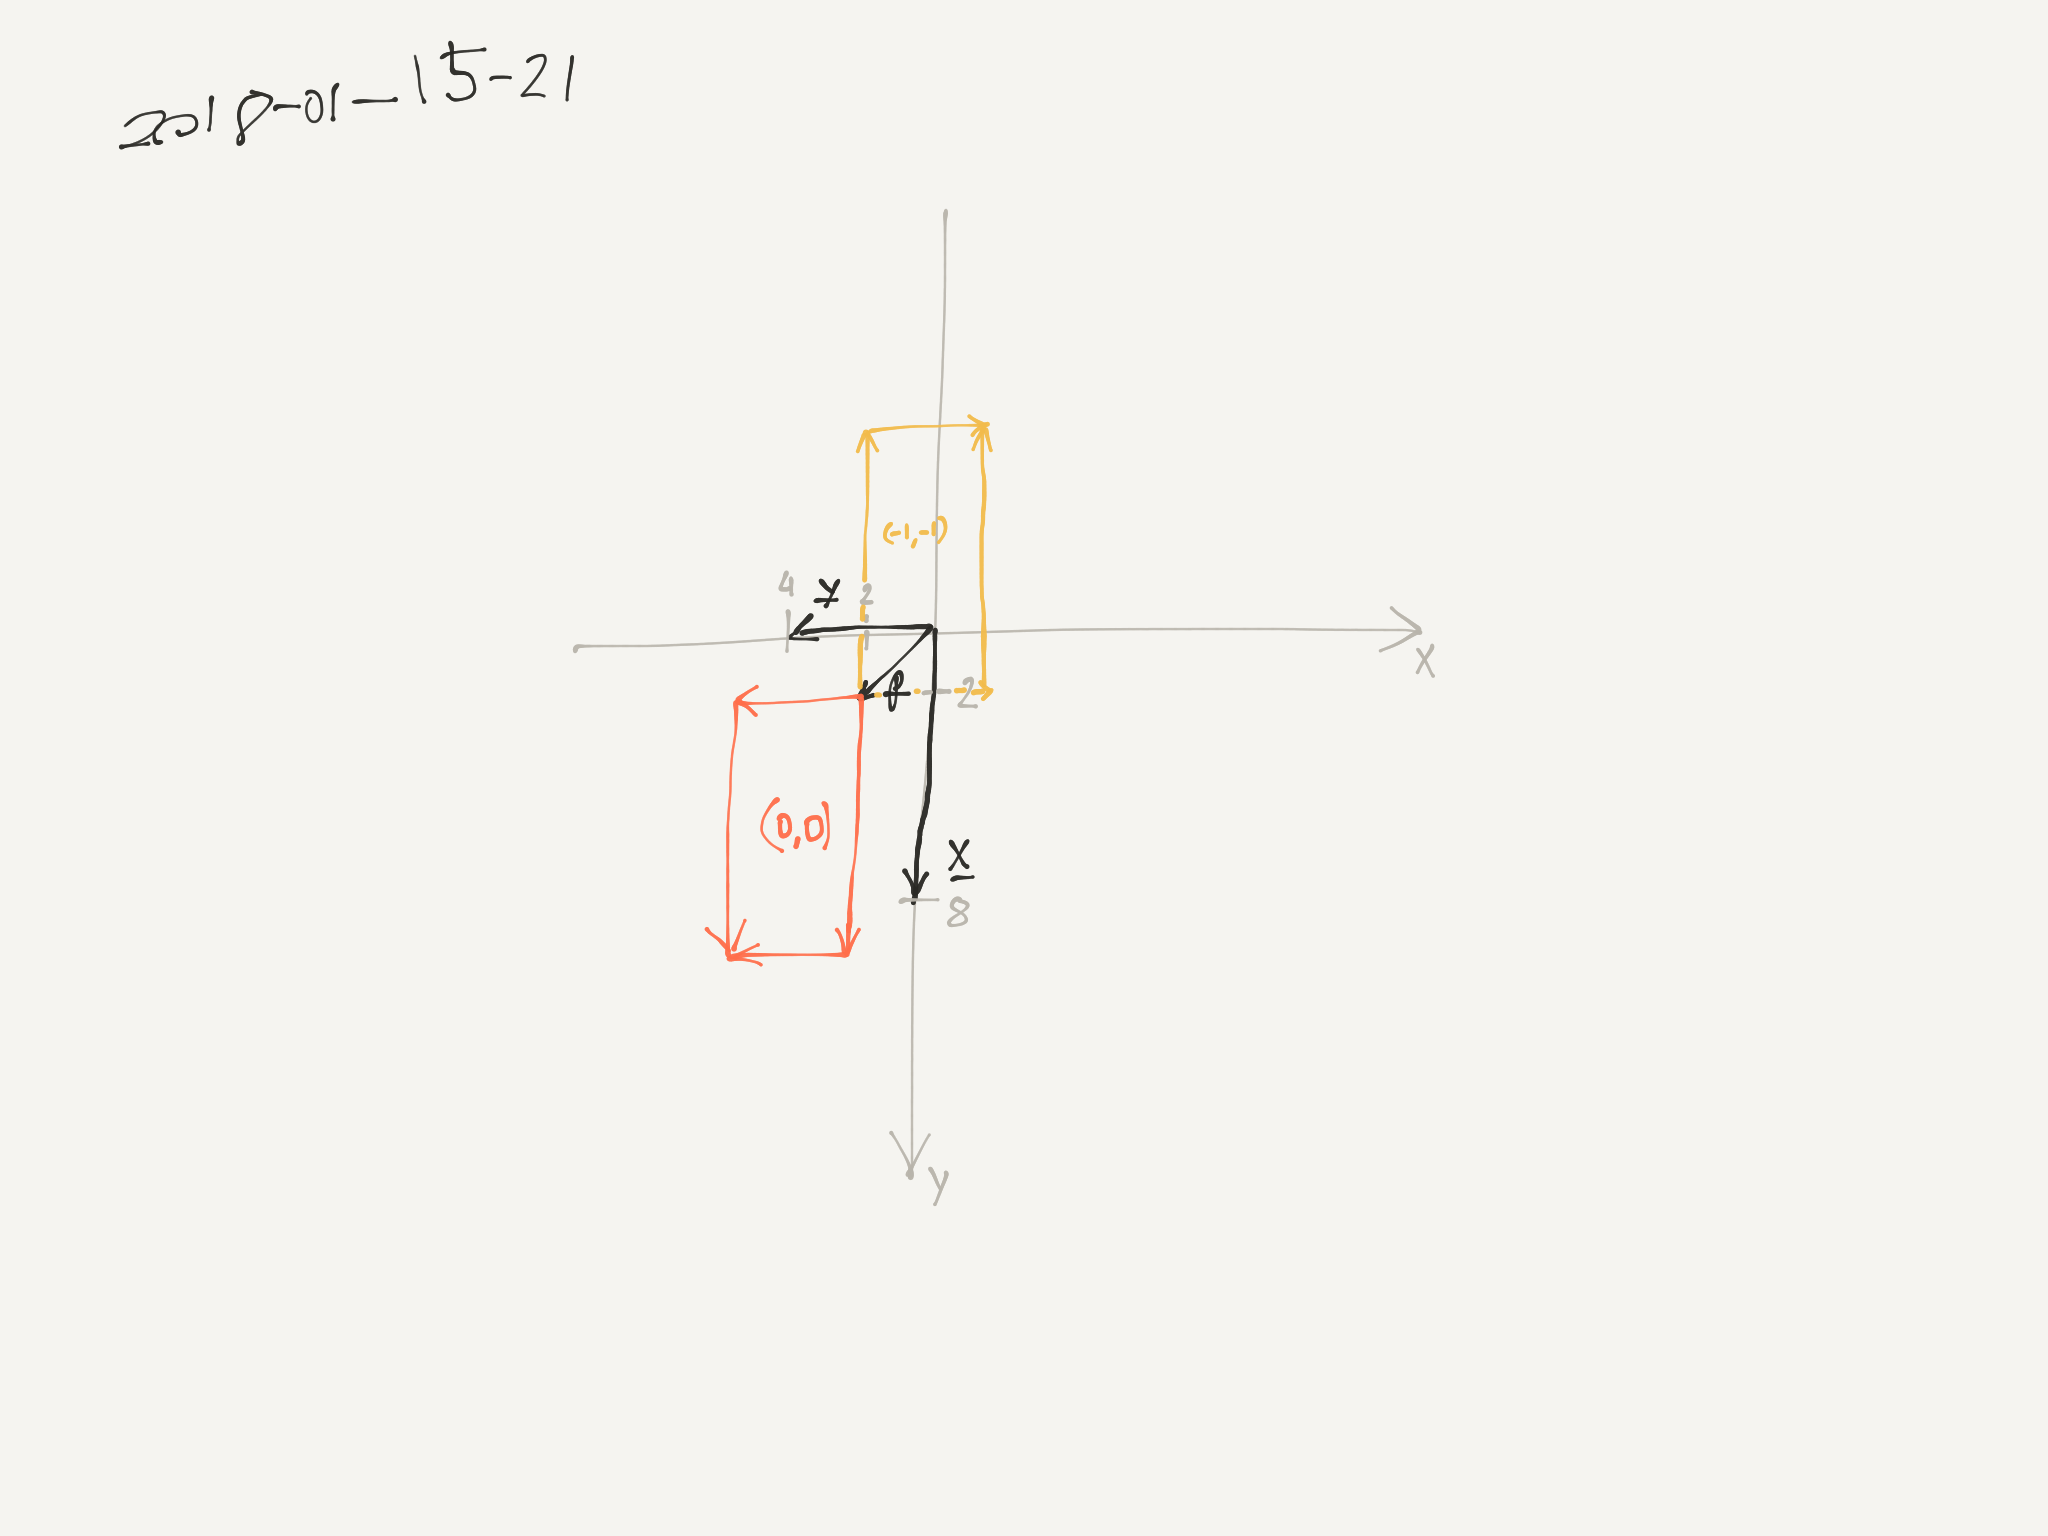 2018-01-15-21
(-1,-1)
4 y 2
x
p 2
(0,0)
x
8
y